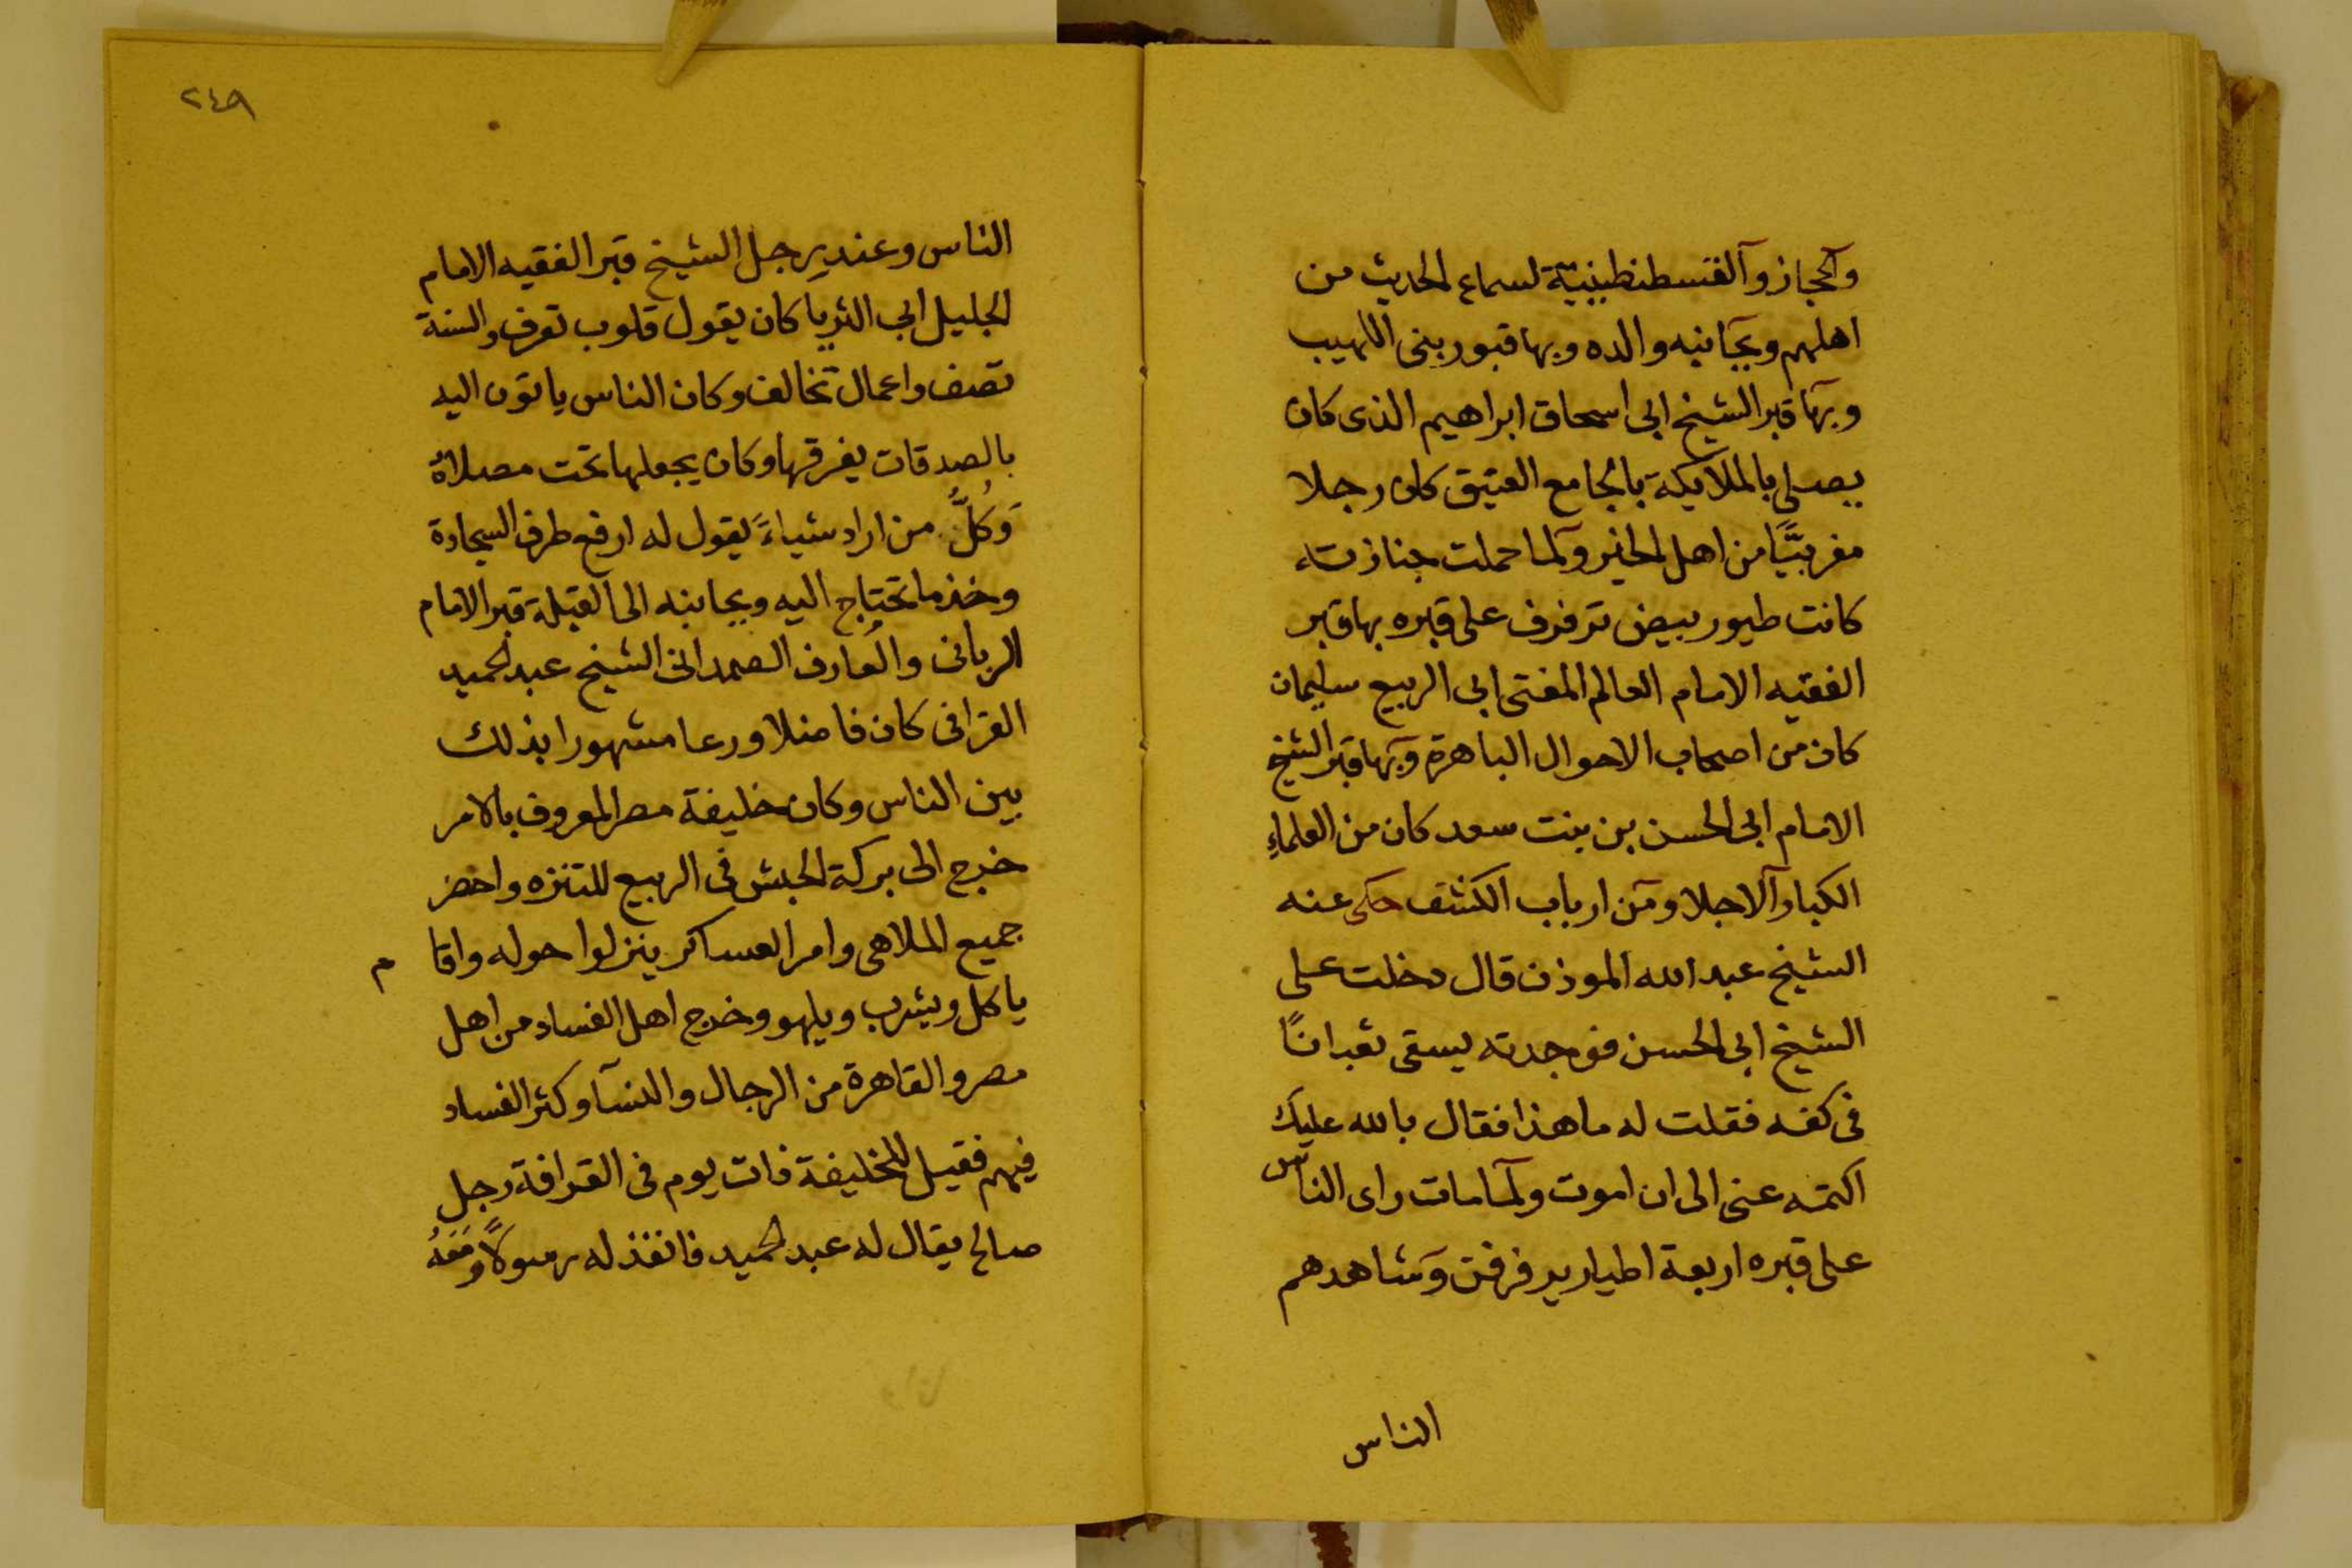 والحجاز والقسطنطينية لسماع الحديث من
اهلهم وبجانبه والده وبها قبور بنى اللهيب
وبها قبر الشيخ ابى اسحاق ابراهيم الذى كان
يصلى بالملايكة بالجامع العتيق كان رجلا
مغربيًّا من اهل الخير ولما حملت جنازته
كانت طيور بيض ترفرف على قبره بها قبر
الفقيه الامام العالم المفتى ابى الربيع سليمان
كان من اصحاب الاحوال الباهرة وبها قبر الشيخ
الامام ابى الحسن بن بنت سعد كان من العلماء
الكبار الاجلا ومن ارباب الكشف حكى عنه
الشيخ عبد الله الموذن قال دخلت على
الشيخ ابى الحسن فوجدته يسقى ثعبانًا
فى كفه فقلت له ما هذا فقال بالله عليك
اكتمه عنى الى ان اموت ولما مات راى الناس
على قبره اربعة اطيار يرفرفن وشاهدهم
الناس
٢٤٩
الناس وعند رجل الشيخ قبر الفقيه الامام
الجليل ابى الثريا كان يقول قلوب تعرف والسنة
تصف واعمال تخالف وكان الناس ياتون اليه
بالصدقات يفرقها وكان يجعلها تحت مصلاة
وَكُلُّ من اراد شياءً يقول له ارفع طرف السجادة
وخذ ما تحتاج اليه وبجانبه الى القبلة قبر الامام
الربانى والعارف الصمدانى الشيخ عبد الحميد
القرافى كان فاضلا ورعا مشهورا بذلك
بين الناس وكان خليفة مصر المعروف بالامر
خرج الى بركة الحبش فى الربيع للتنزه واحضر
جميع الملاهى وامر العساكر ينزلوا حوله واقا م
ياكل ويشرب ويلهو وخرج اهل الفساد من اهل
مصر والقاهرة من الرجال والنسآ وكثر الفساد
فيهم فقيل للخليفة ذات يوم فى القرافة رجل
صالح يقال له عبد الحميد فانفذ له رسولًا ومَعَهُ